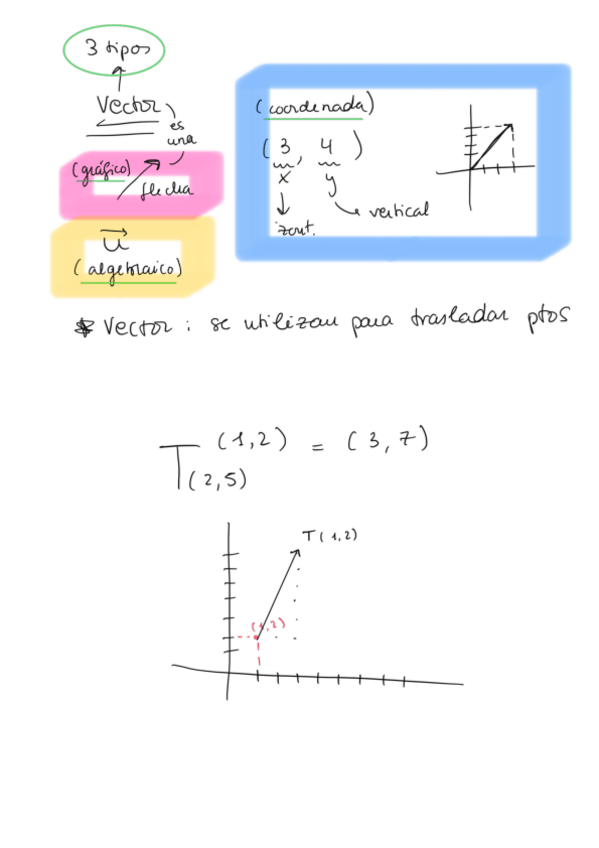 3 tipos
Vector
es
una
(gráfico)
flecha
u
(algebraico)
(coordenada)
(3, 4)
x y
vertical
izont.
* Vector : se utilizan para trasladar ptos
T(2,5) (1,2) = (3,7)
T(1,2)
(1,2)